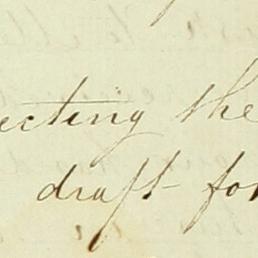 ecting the
draft for